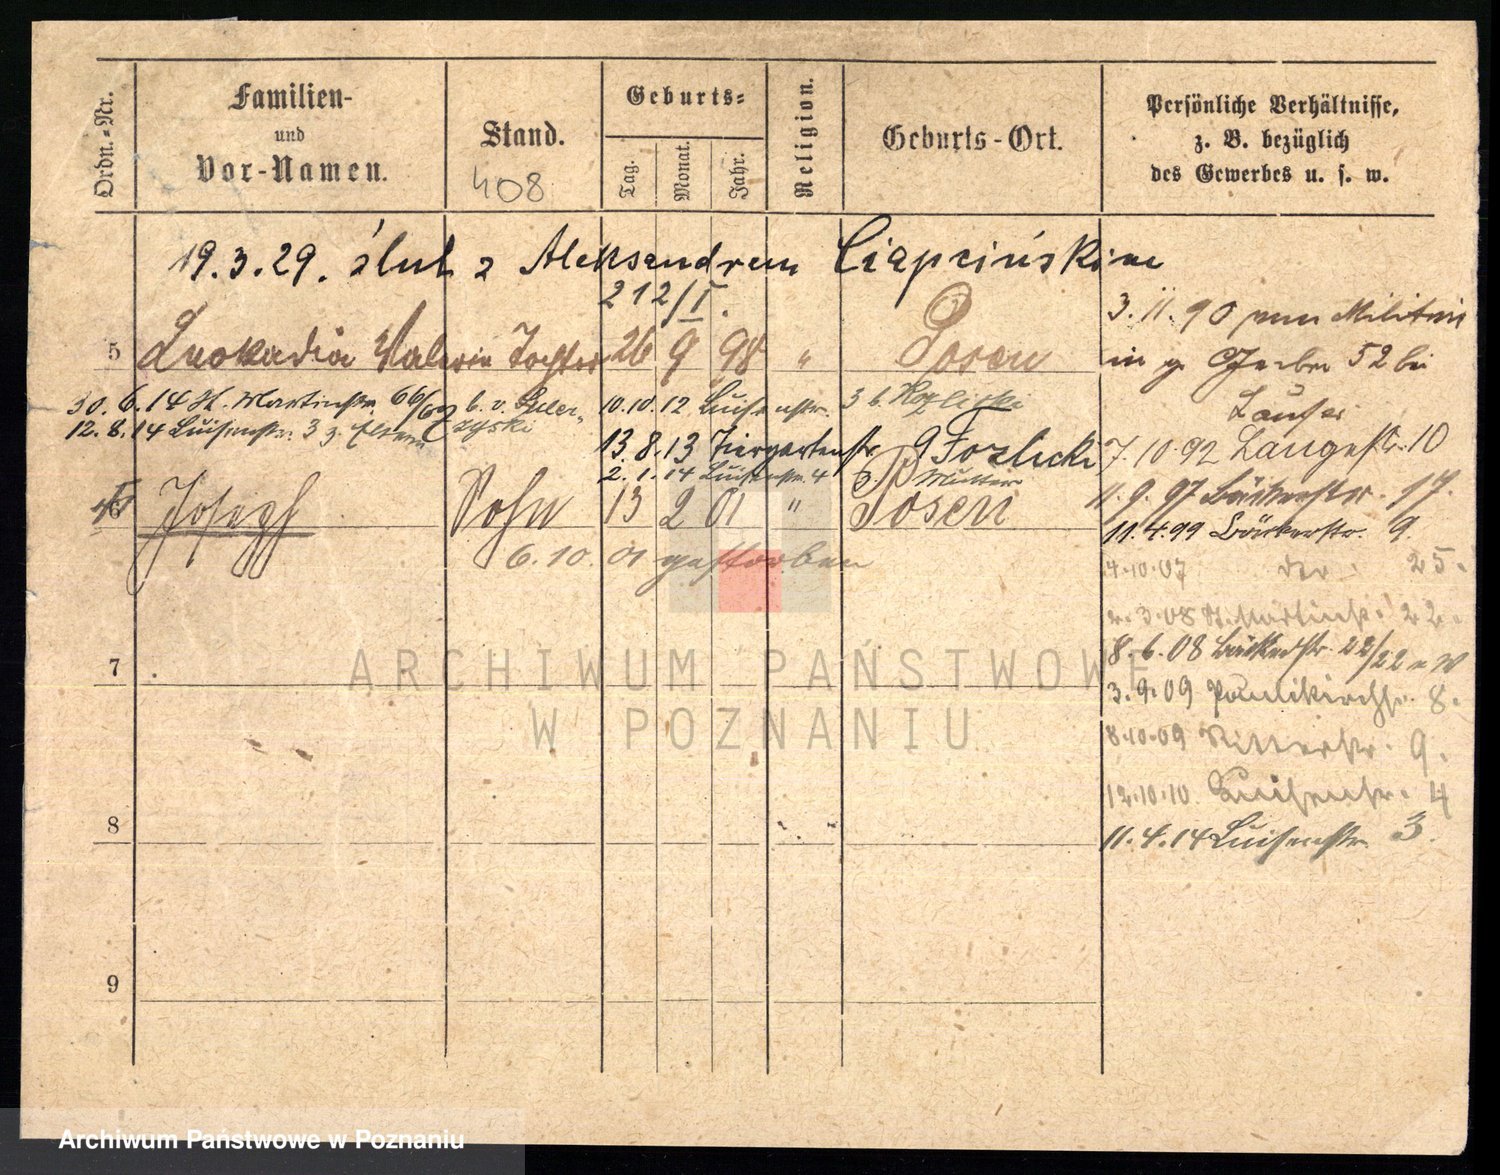 Ordn.-Nr.
Familien-
und
Vor-Namen.
Stand.
408
Geburts-
Tag.
Monat.
Jahr.
Religion.
Geburts-Ort.
Persönliche Verhältnisse,
z. B. bezüglich
des Gewerbes u. s. w.
19.3.29. ślub z Aleksandrem Ciapcińskim
212/I.
5 Leokadia Valeria Tochter 26 9 98 " Posen
30.6.14 St. Martinstr. 66/67 b. v.
12.8.14 Luisenstr. 3 z. Eltern
10.10.12 Luisenstr. 3 b. Kozlicki
13.8.13 Tiergartenstr. 9 Kozlicki
2.1.14 Luisenstr. 4 Mutter
6 Joseph Sohn 13 2 01 " Posen
6.10.01 gestorben
7
8
9
3.11.90 vom Militär
in 52 bei
Laufer
7.10.92 Langestr. 10
11.9.97 Bäckerstr. 17.
11.4.99 Bäckerstr. 9.
4.10.07 der 25.
2.3.08 St. Martinstr. 22.
8.6.08 Bäckerstr. 22/22
3.9.09 Paulikirchstr. 8.
8.10.09 Ritterstr. 9.
12.10.10 Luisenstr. 4
11.4.14 Luisenstr. 3.
ARCHIWUM PAŃSTWOWE
W POZNANIU
Archiwum Państwowe w Poznaniu